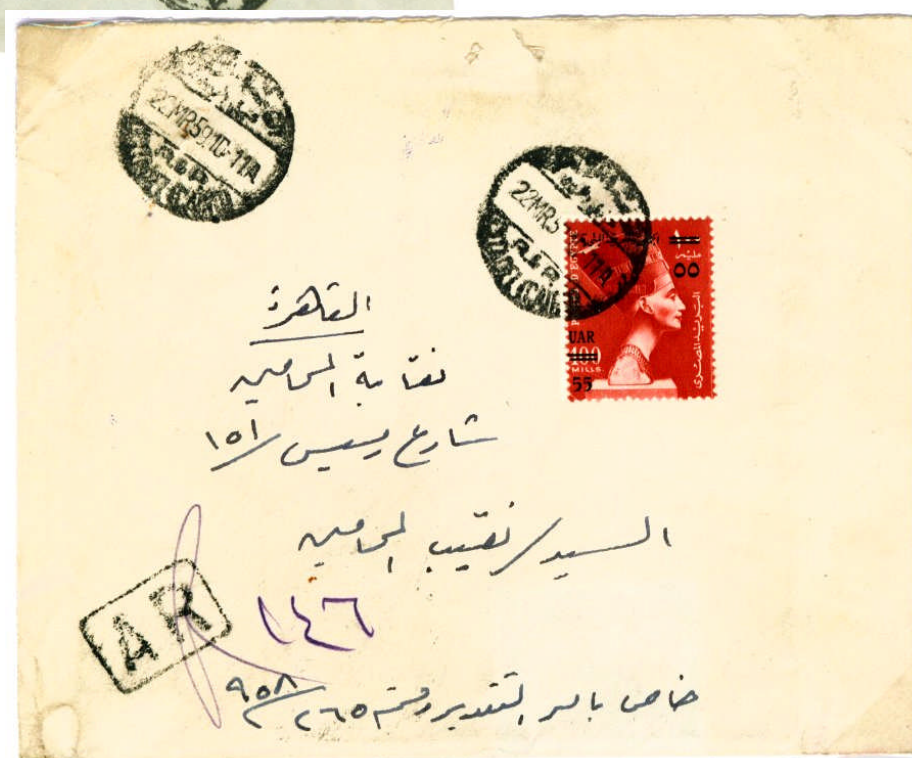 22MR59.10-11A
22MR5 11A
UAR
100
MILLS
55
٥٥
مليم
البريد المصري
القاهرة
نقابة المحامين
شارع رمسيس / ١٥١
السيد / نقيب المحامين
AR
١٤٦
خاص بامر التقدير رقم ٢٦٥ / ٩٥٨